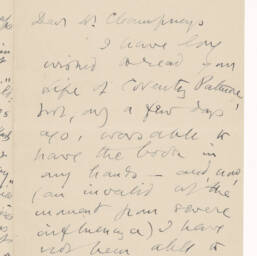 Dear Mr Champneys
I have long
wished to read your
Life of Coventry Patmore,
but, only a few days
ago, was able to
have the book in
my hands — and, now
(an invalid at the
moment from severe
influenza) I have
not been able to